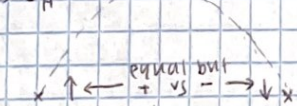 equal but
x ↑ ← + vs - → ↓ x